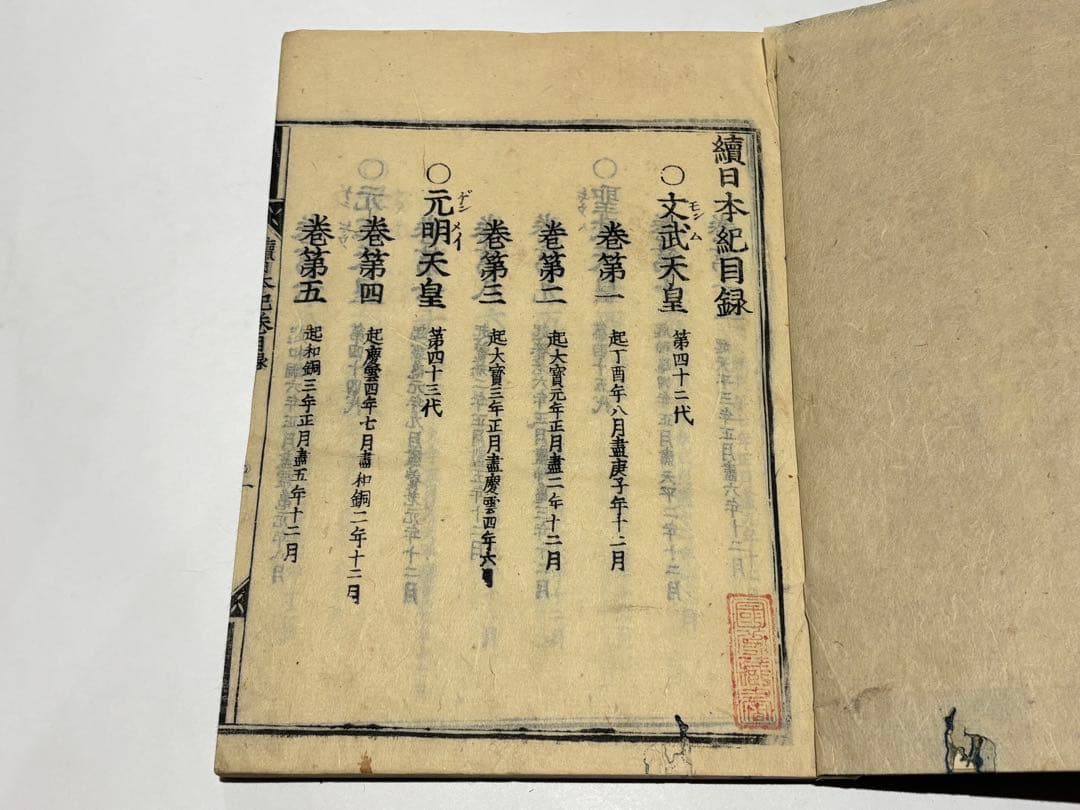 續日本紀目録
○文武天皇 第四十二代
モン ム
卷第一 起丁酉年八月盡庚子年十二月
卷第二 起大寶元年正月盡二年十二月
卷第三 起大寶三年正月盡慶雲四年六月
○元明天皇 第四十三代
ゲン メイ
卷第四 起慶雲四年七月盡和銅二年十二月
卷第五 起和銅三年正月盡五年十二月
續日本紀卷目録